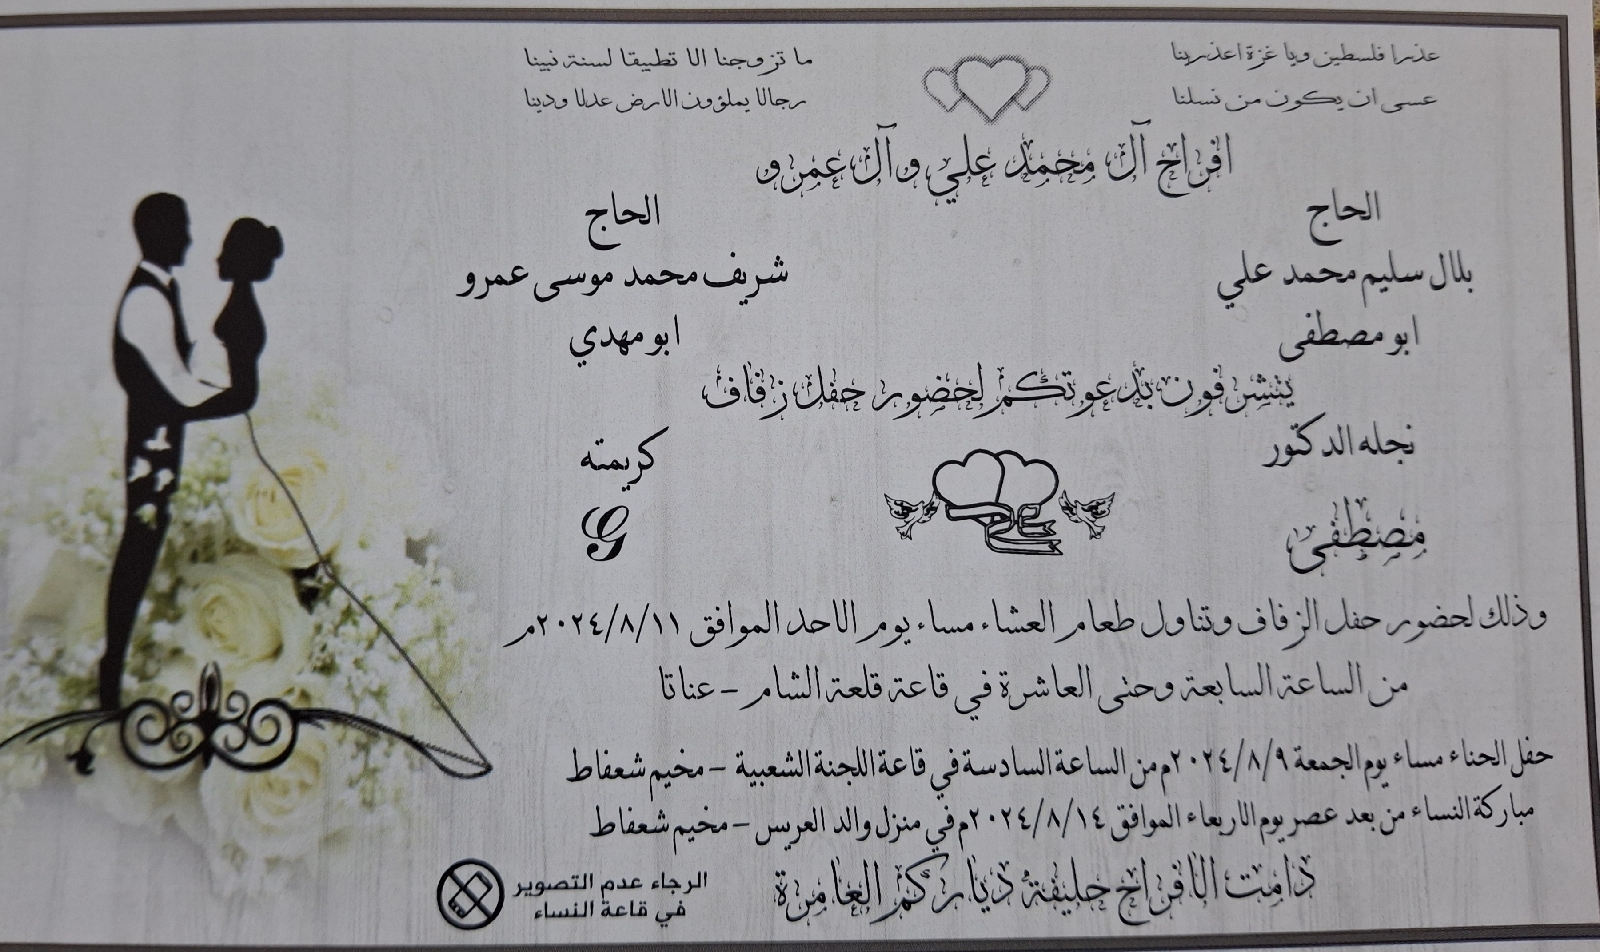 عذرا فلسطين ويا غزة اعذرينا
ما تزوجنا الا تطبيقا لسنة نبينا
عسى ان يكون من نسلنا
رجالا يملؤون الارض عدلا ودينا
افراح آل محمد علي وآل عمرو
الحاج
بلال سليم محمد علي
ابو مصطفى
الحاج
شريف محمد موسى عمرو
ابو مهدي
يتشرفون بدعوتكم لحضور حفل زفاف
نجله الدكتور
مصطفى
كريمته
G
وذلك لحضور حفل الزفاف وتناول طعام العشاء مساء يوم الاحد الموافق ٢٠٢٤/٨/١١م
من الساعة السابعة وحتى العاشرة في قاعة قلعة الشام - عناتا
حفل الحناء مساء يوم الجمعة ٢٠٢٤/٨/٩م من الساعة السادسة في قاعة اللجنة الشعبية - مخيم شعفاط
مباركة النساء من بعد عصر يوم الاربعاء الموافق ٢٠٢٤/٨/١٤م في منزل والد العريس - مخيم شعفاط
دامت الافراح حليفة دياركم العامرة
الرجاء عدم التصوير
في قاعة النساء